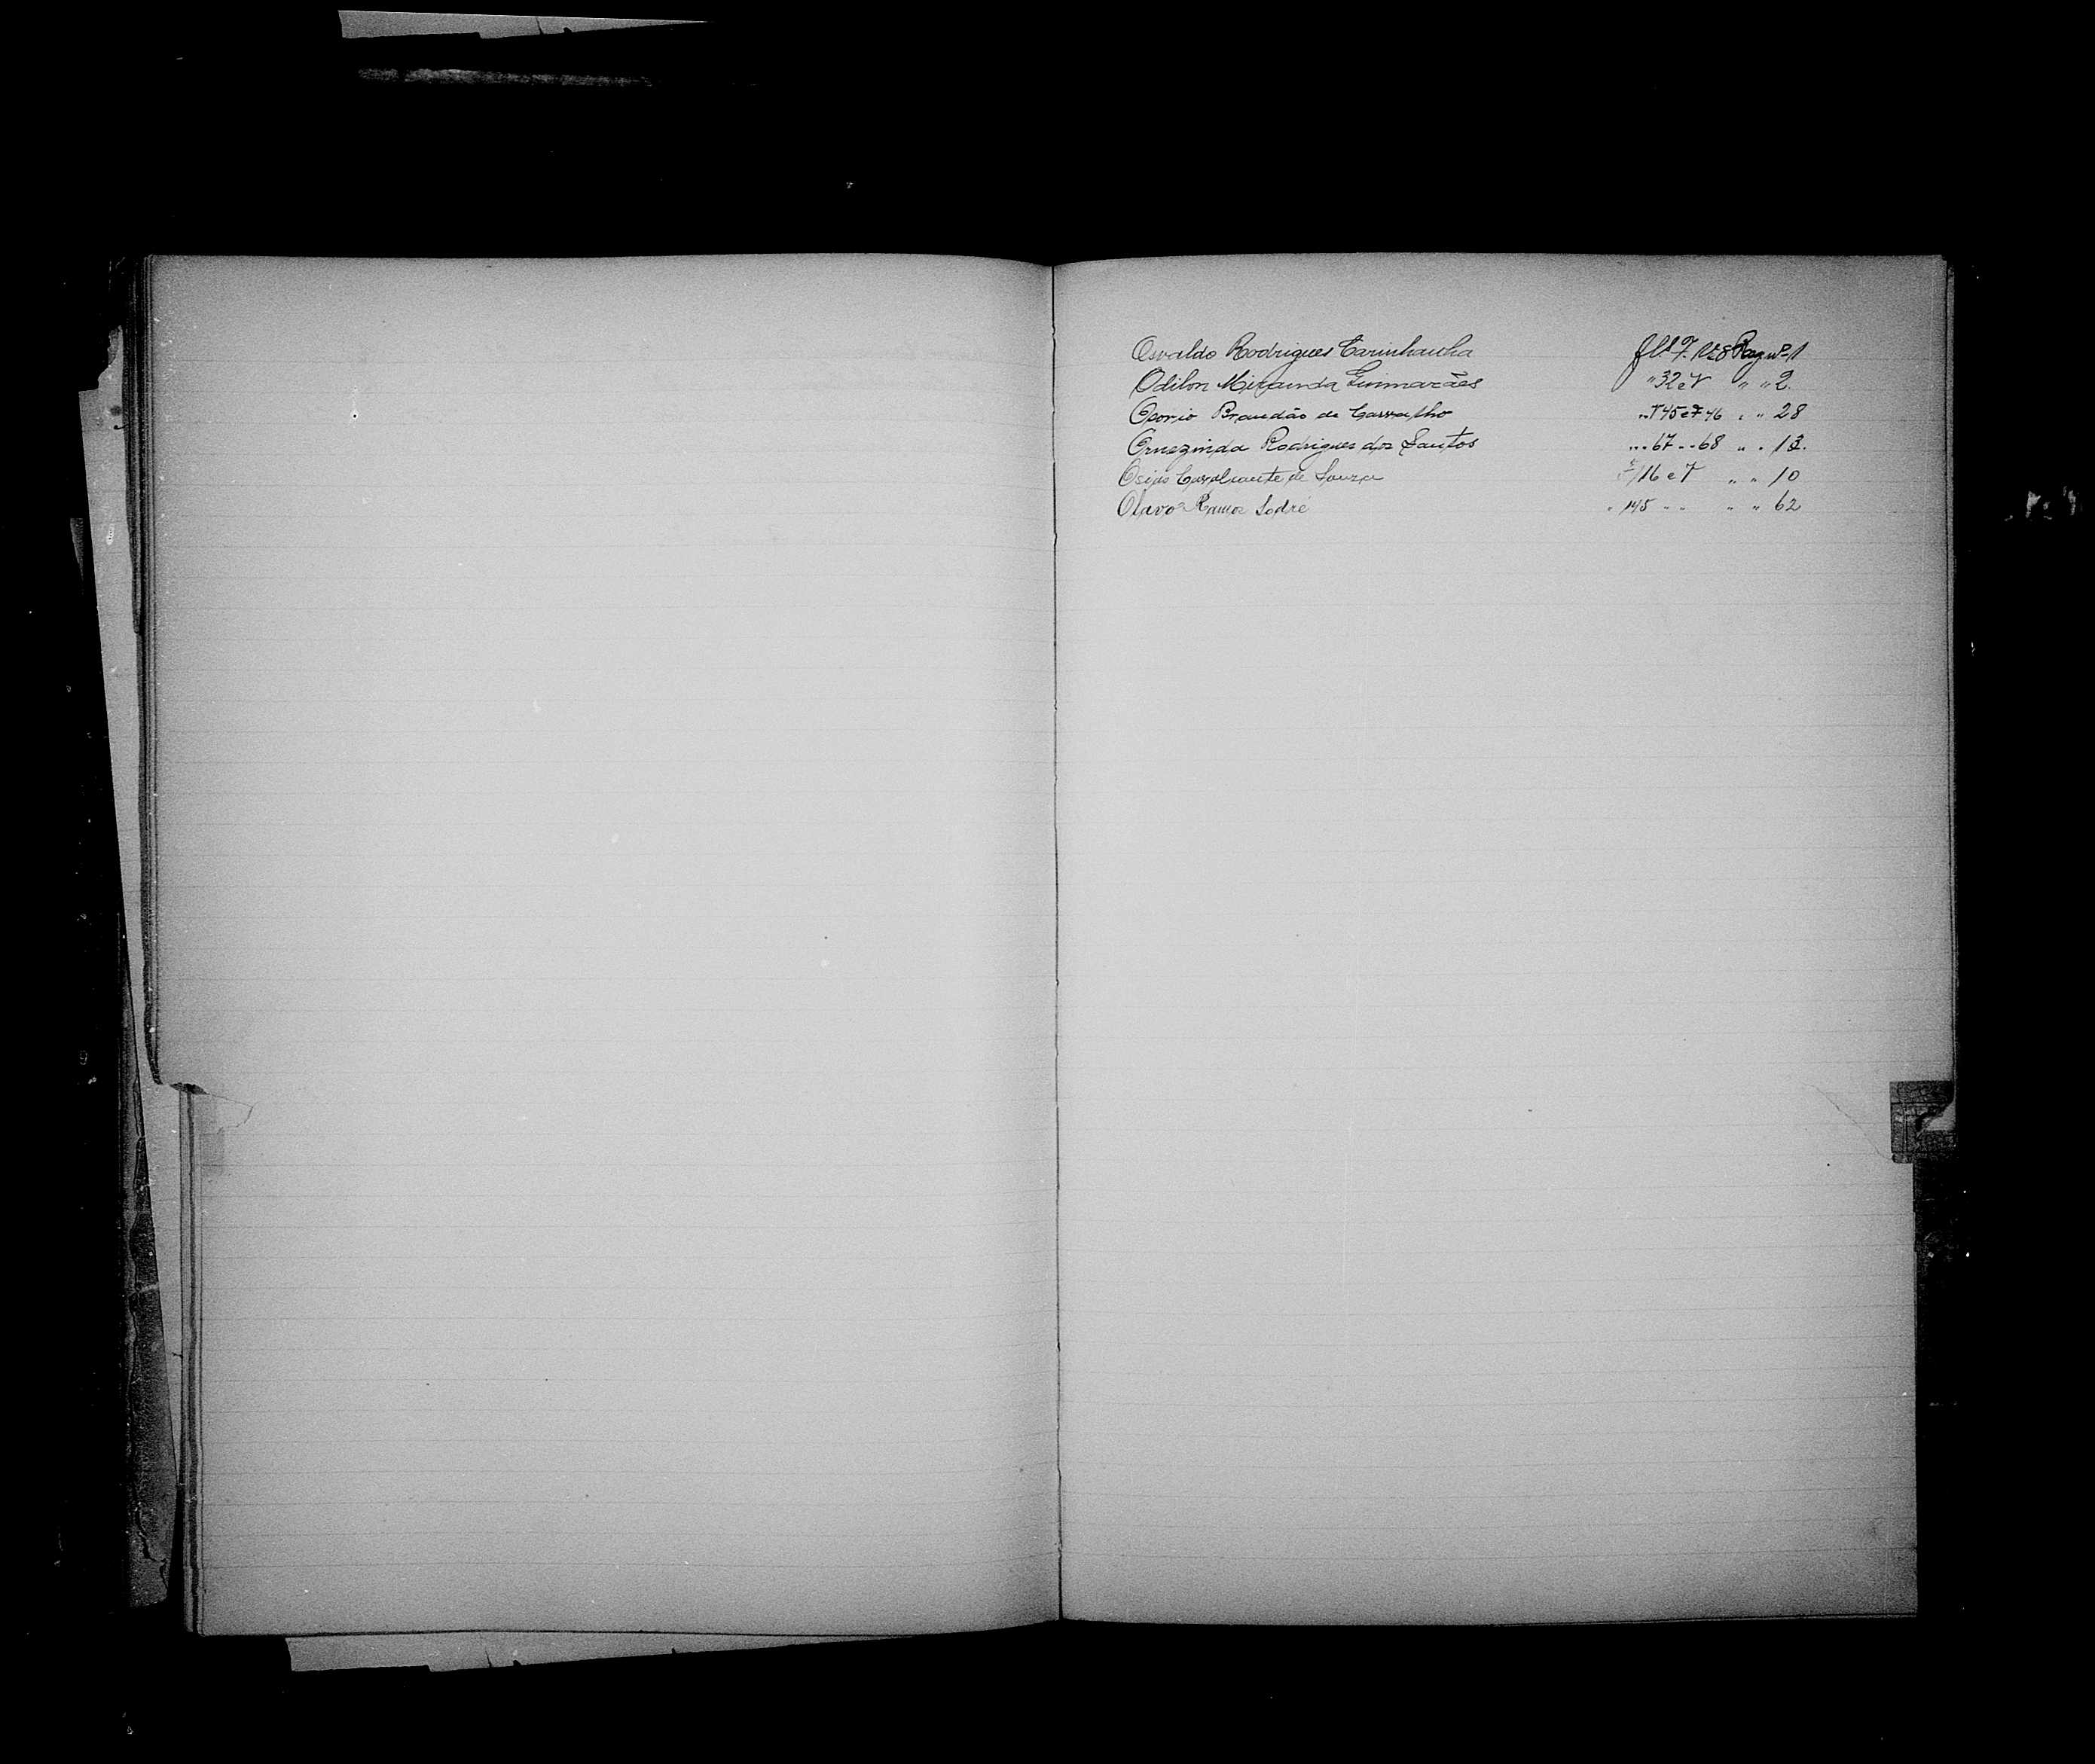 Osvaldo Rodrigues Carinhanha fls 7. Reg nº 1
Odilon Miranda Guimarães " 32 e V " " 2.
Osorio Brandão de Carvalho 45 e 46 " " 28
Ornezinda Rodrigues dos Santos " " 67 " " 68 " "
Cavalcante de Souza 116 e V " " 10
Olavo Ramos Sodré " 145 " " " " 62